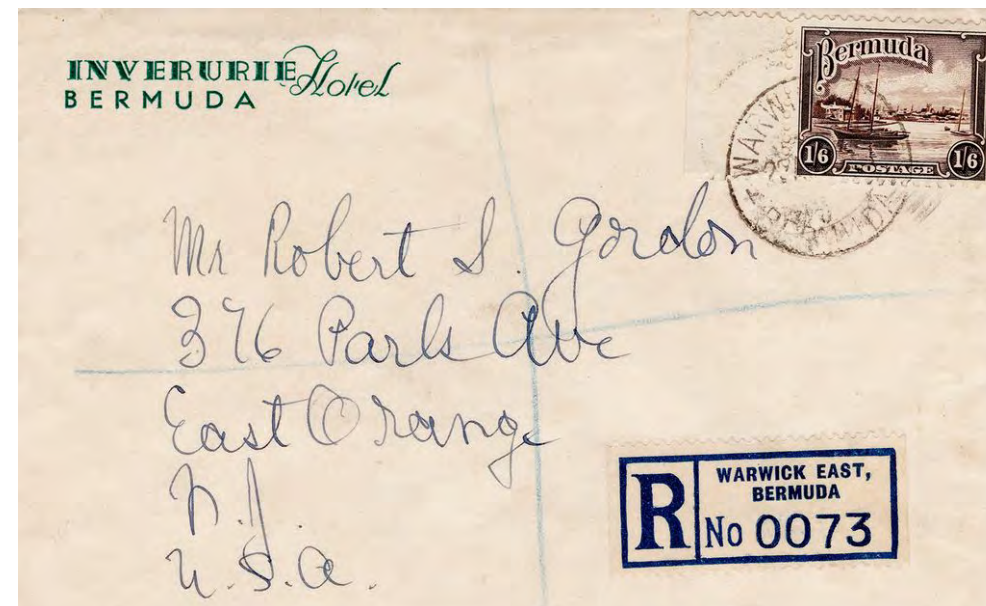 INVERURIE Hotel
BERMUDA
Bermuda
1/6 POSTAGE 1/6
WARWICK
BERMUDA
Mr Robert S. Gordon
376 Park Ave
East Orange
N.J.
U.S.A.
R
WARWICK EAST,
BERMUDA
No 0073